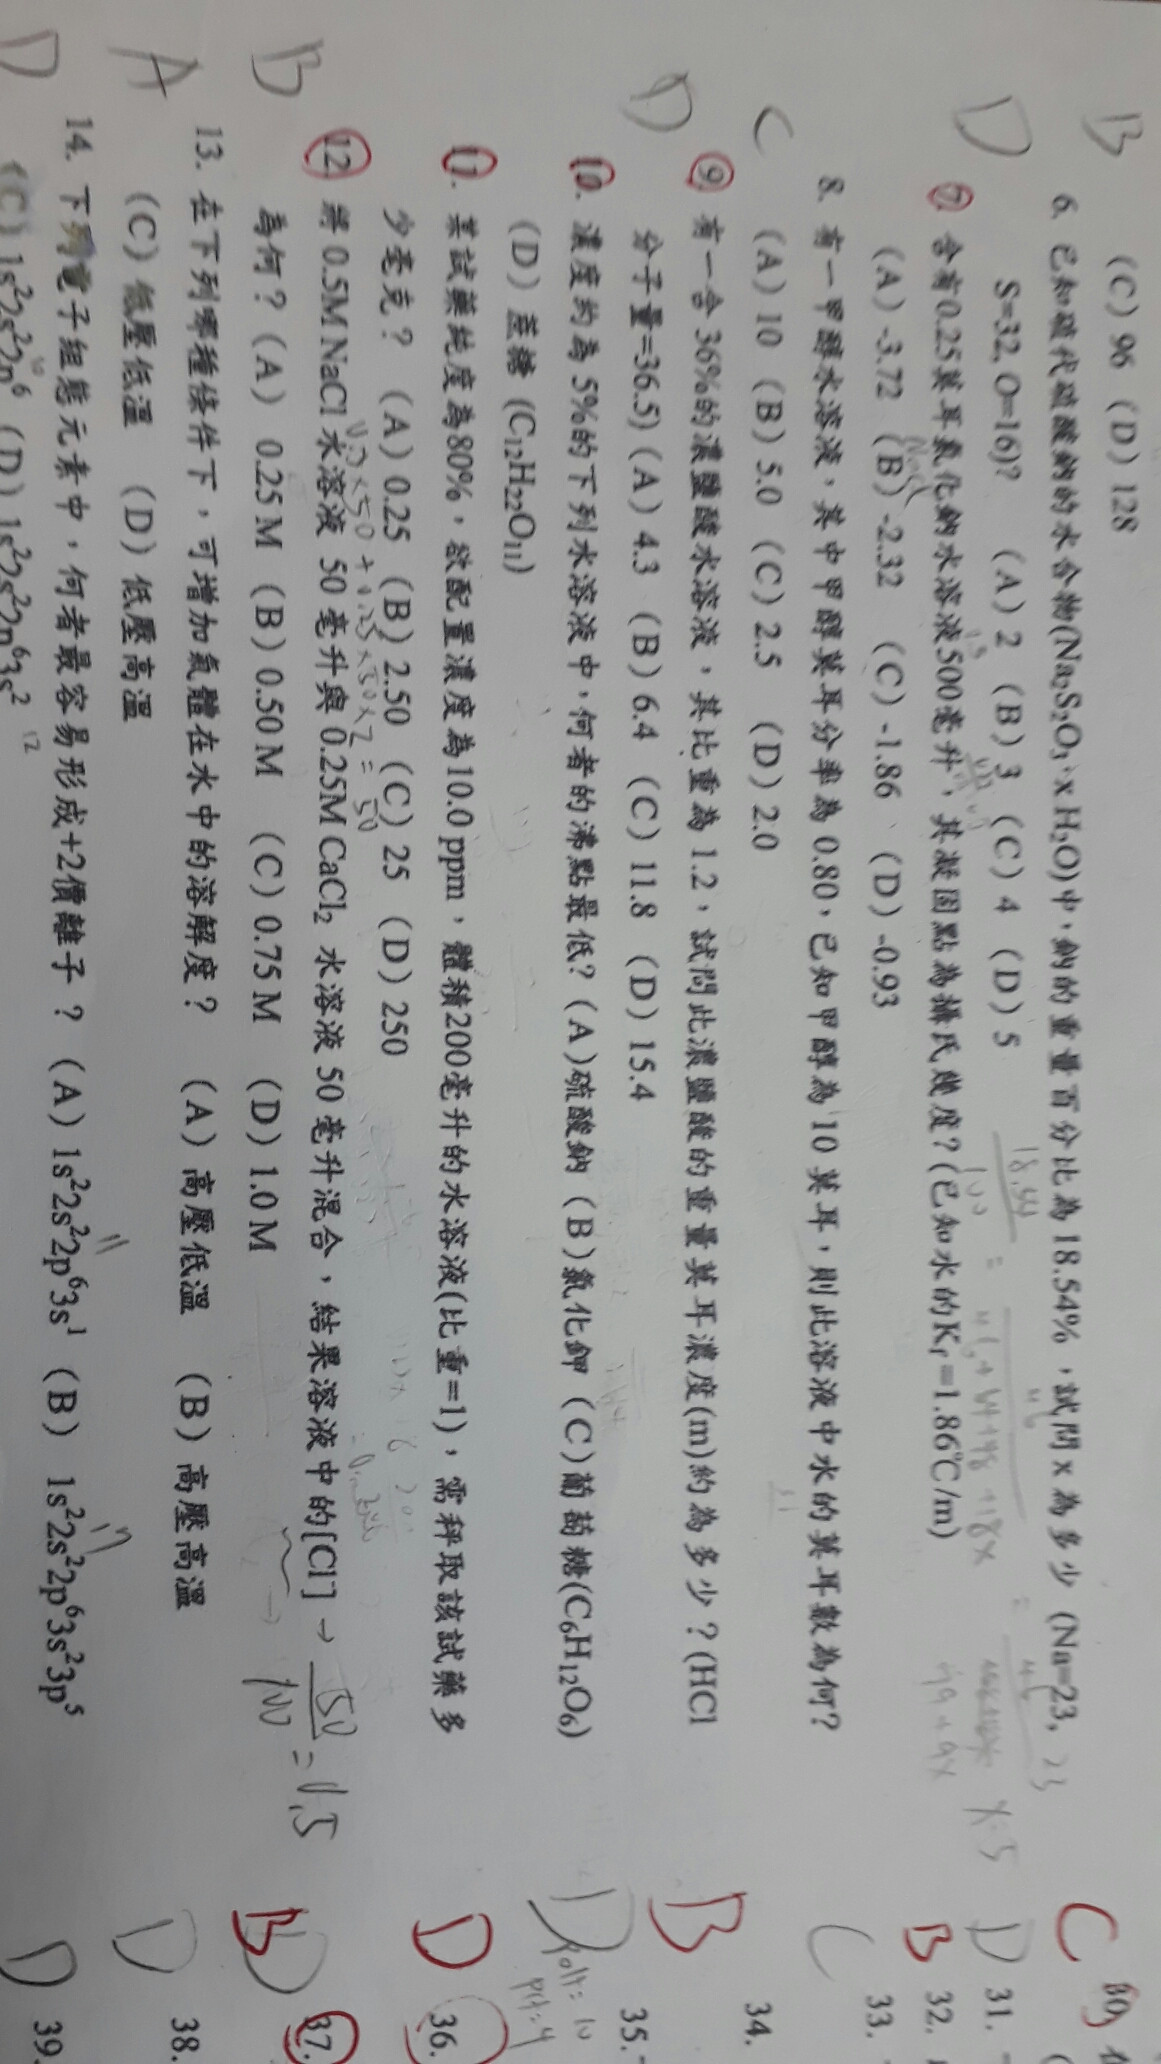 (C) 96 (D) 128
B
6. 已知硫代硫酸鈉的水合物(Na₂S₂O₃·x H₂O)中,鈉的重量百分比為 18.54%,試問 x 為多少 (Na=23,
S=32, O=16)? (A) 2 (B) 3 (C) 4 (D) 5
D
7. 含有0.25莫耳氯化鈉水溶液500毫升,其凝固點為攝氏幾度?(已知水的Kf=1.86℃/m)
(A) -3.72 (B) -2.32 (C) -1.86 (D) -0.93
8. 有一甲醇水溶液,其中甲醇莫耳分率為 0.80,已知甲醇為 10 莫耳,則此溶液中水的莫耳數為何?
C
(A) 10 (B) 5.0 (C) 2.5 (D) 2.0
9. 有一含 36%的濃鹽酸水溶液,其比重為 1.2,試問此濃鹽酸的重量莫耳濃度(m)約為多少?(HCl
分子量=36.5) (A) 4.3 (B) 6.4 (C) 11.8 (D) 15.4
D
10. 濃度約為 5%的下列水溶液中,何者的沸點最低? (A)硫酸鈉 (B)氯化鉀 (C)葡萄糖(C₆H₁₂O₆)
(D) 蔗糖 (C₁₂H₂₂O₁₁)
11. 某試藥純度為80%,欲配置濃度為10.0 ppm,體積200毫升的水溶液(比重=1),需秤取該試藥多
少毫克? (A) 0.25 (B) 2.50 (C) 25 (D) 250
0.5×50 + 0.25×50×2 = 50
12. 將 0.5M NaCl 水溶液 50 毫升與 0.25M CaCl₂ 水溶液 50 毫升混合,結果溶液中的[Cl⁻] → 50/100 = 0.5
為何? (A) 0.25 M (B) 0.50 M (C) 0.75 M (D) 1.0 M
B
13. 在下列哪種條件下,可增加氣體在水中的溶解度? (A) 高壓低溫 (B) 高壓高溫
(C) 低壓低溫 (D) 低壓高溫
A
14. 下列電子組態元素中,何者最容易形成+2價離子? (A) 1s²2s²2p⁶3s¹ (B) 1s²2s²2p⁶3s²3p⁵
(C) 1s²2s²2p⁶ (D) 1s²2s²2p⁶3s²
D
C 30.
D 31.
B 32.
C 33.
34.
B
35.
D
D 36.
B 37.
D 38.
D 39.